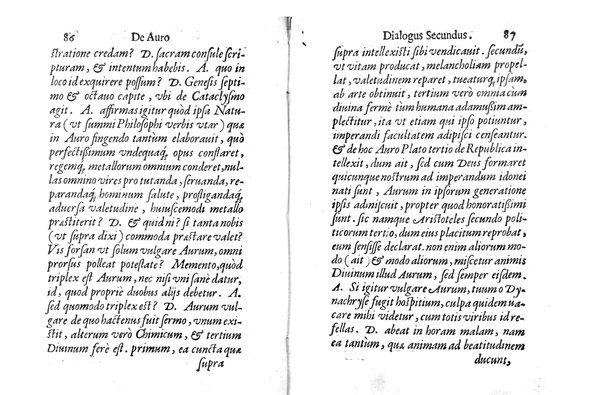 86 De Auro
stratione credam? D. sacram consule scri-
pturam, & intentum habebis. A. quo in
loco id exquirere possum? D. Genesis septi-
mo & octauo capite, vbi de Cataclysmo
agit. A. affirmas igitur quòd ipsa Natu-
ra (vt summi Philosophi verbis vtar) quæ
in Auro fingendo tantùm elaborauit, quò
perfectißimum vndequaq; opus constaret,
regemq́; metallorum omnium conderet, nul-
las omnino vires pro tutanda, seruanda, re-
parandaq́; hominum salute, profligandaq́;
aduersa valetudine, huiuscemodi metallo
præstiterit? D. & quidni? si tanta nobis
(vt supra dixi) commoda præstare valet?
Vis forsan vt solum vulgare Aurum, omni
prorsus polleat potestate? Memento, quòd
triplex est Aurum, nec nisi vni sanè datur,
id, quod propriè duobus alijs debetur. A.
sed quomodo triplex est? D. Aurum vul-
gare de quo hactenus fuit sermo, vnum exi-
stit, alterum verò Chimicum, & tertium
Diuinum ferè est. primum, ea cuncta quæ
supra
Dialogus Secundus. 87
supra intellexisti sibi vendicauit. secundũ,
vt vitam producat, melancholiam propel-
lat, valetudinem reparet, tueaturq́; ipsam,
ab arte obtinuit, tertium verò omnia cum
diuina fermè tùm humana adamußim am-
plectitur, ita vt etiam qui ipso potiuntur,
imperandi facultatem adipisci censeantur.
& de hoc Auro Plato tertio de Republica in-
tellexit, dum ait, sed cum Deus formaret
quicunque nostrum ad imperandum idonei
nati sunt, Aurum in ipsorum generatione
ipsis adniscuit, propter quod honoratißimi
sunt. sic namque Aristoteles secundo poli-
ticorum tertio, dum eius placitum reprobat,
eum sensisse declarat. non enim aliorum mo-
do (ait) & modo aliorum, miscetur animis
Diuinum illud Aurum, sed semper eisdem.
A. Si igitur vulgare Aurum, tuum ò Dy-
nachryse fugit hospitium, culpa quidem ua-
care mihi videtur, cum totis viribus id re-
fellas. D. abeat in horam malam, nam
ea tantùm, quæ animam ad beatitudinem
ducunt,